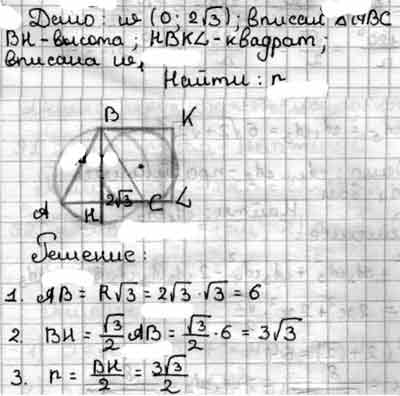 Дано: ω (0; 2√3); вписан △ABC
BH - высота; HBKL - квадрат;
вписана ω₁
Найти: r
B
K
A
H
2√3
C
L
Решение:
1. AB = R√3 = 2√3 · √3 = 6
2. BH = √3/2 AB = √3/2 · 6 = 3√3
3. r = BH/2 = 3√3/2